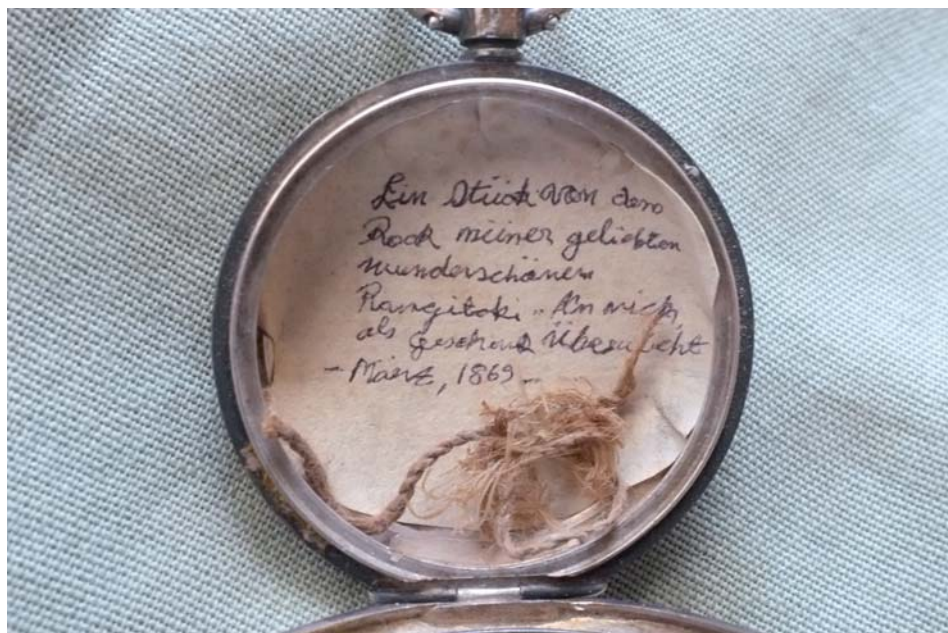 Ein Stück von dem
Rock meiner geliebten
wunderschönen
Rangitoki. An mich
als Geschenk überreicht
- März, 1869 -